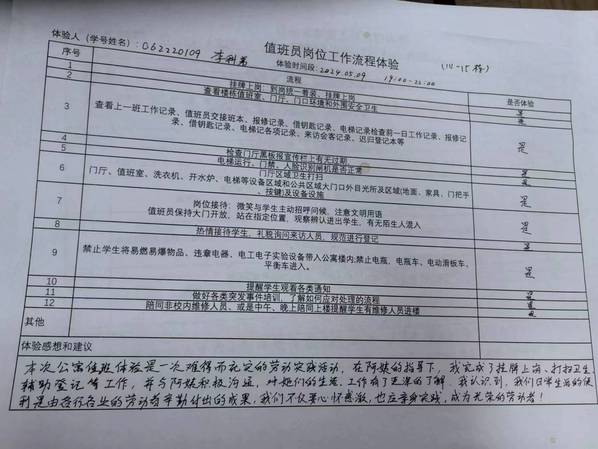 值班员岗位工作流程体验
体验人（学号姓名）：062220109 李科男
体验时间段：2024.05.09 19:00-22:00 （14-15栋）
序号 流程 是否体验
1 挂牌上岗，到岗统一着装、挂牌上岗 是
2 查看楼栋值班室、门厅、门口环境和外围安全卫生 是
3 查看上一班工作记录、值班员交接班本、报修记录、借钥匙记录、电梯记录检查前一日工作记录、报修记录、借钥匙记录、电梯记各项记录、来访会客记录、迟归登记本等 是
4
5 检查门厅黑板报宣传栏上有无过期 是
电梯运行、门禁、人脸识别闸机是否正常
6 门厅区域卫生打扫 是
门厅、值班室、洗衣机、开水炉、电梯等设备区域和公共区域大门口外目光所及区域(地面、家具、门把手、按键)及设备设施
7 岗位接待：微笑与学生主动招呼问候，注意文明用语 是
值班员保持大门开放，站在指定位置，观察辨认进出学生，有无陌生人混入
8 热情接待学生，礼貌询问来访人员，规范进行登记 是
9 禁止学生将易燃易爆物品、违章电器、电工电子实验设备带入公寓楼内;禁止电瓶、电瓶车、电动滑板车、平衡车进入。 是
10 提醒学生观看各类通知 是
11 做好各类突发事件培训，了解如何应对处理的流程 是
12 陪同非校内维修人员、或是中午、晚上同上楼提醒学生有维修人员进楼 是
其他
体验感想和建议
本次公寓值班体验是一次难得而充实的劳动实践活动，在阿姨的指导下，我完成了挂牌上岗、打扫卫生、
辅助登记等工作，并与阿姨积极沟通，对她们的生活、工作有了更深的了解。我认识到，我们日常生活的便
利是由各行各业的劳动者辛勤付出的成果，我们不仅要心怀感激，也应亲身实践，成为光荣的劳动者！